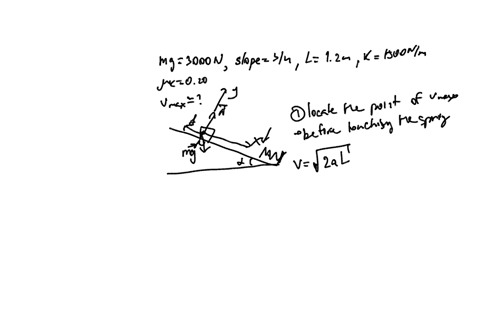 mg=3000N, slope=3/4, L=1.2m, K=1300N/m
μk=0.20
Vmax=?
y
N
① locate the point of vmax
→ before touching the spring
d
x
mg
α
V=√2aL